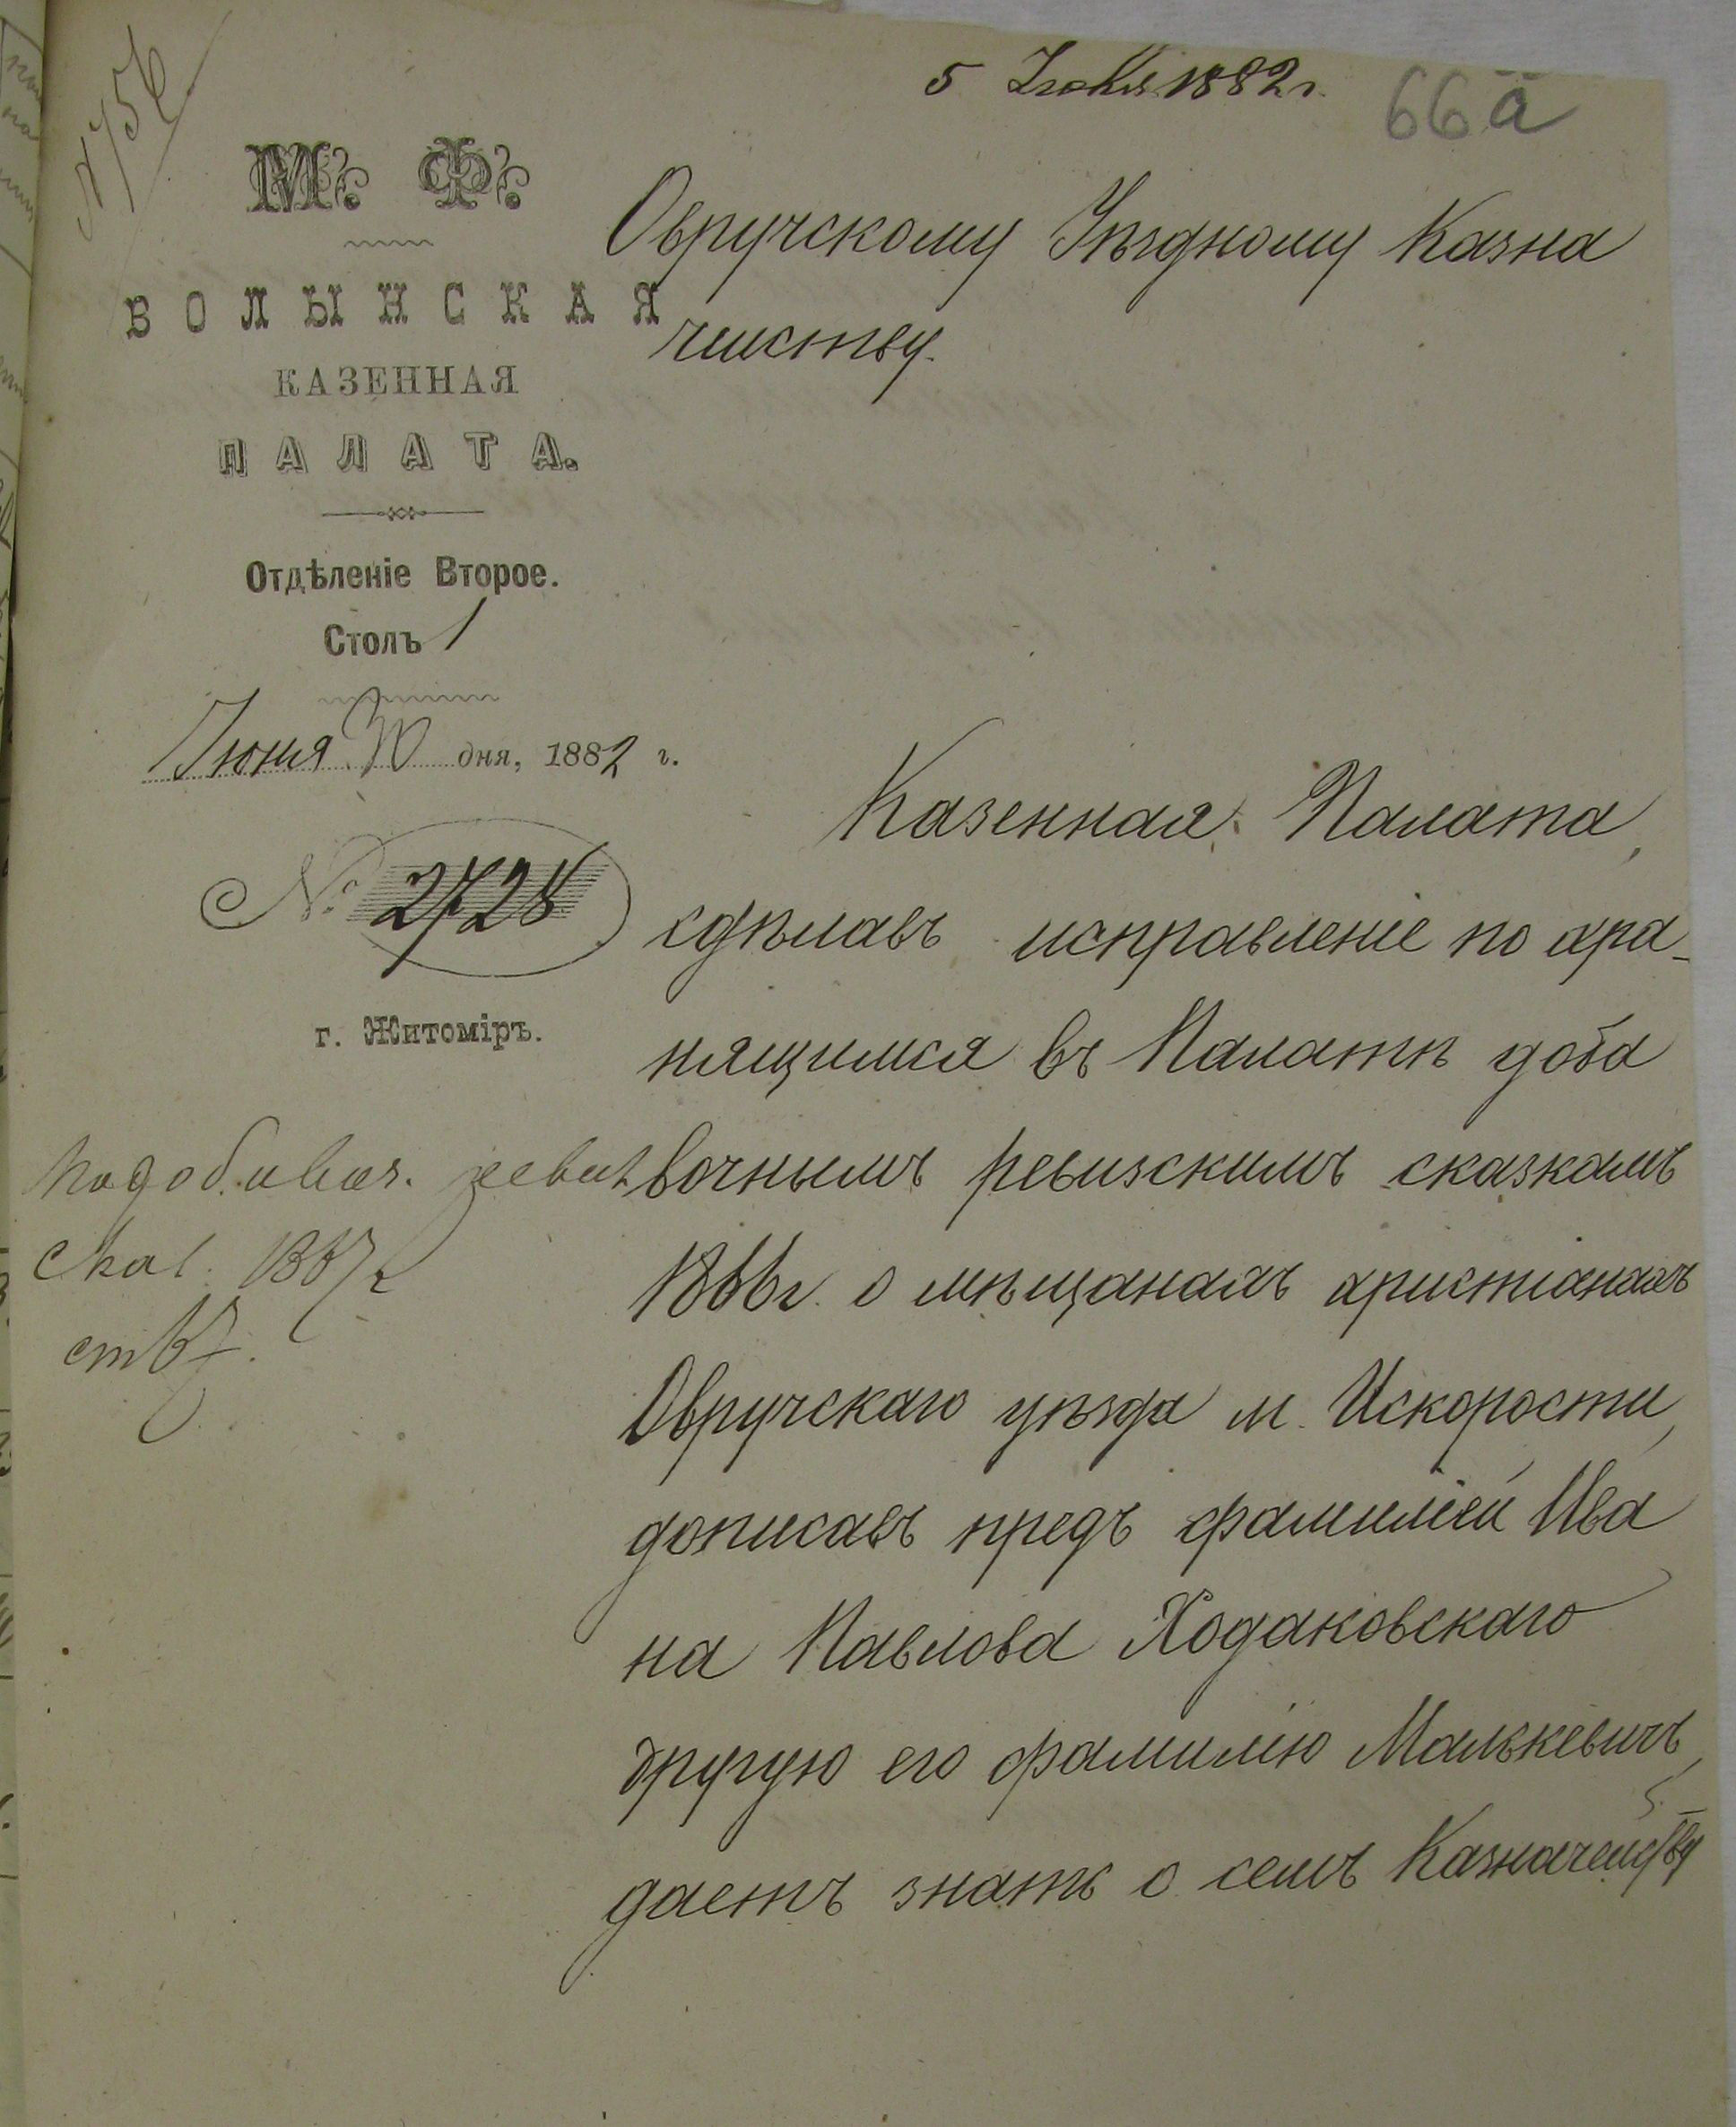 5 Июля 1882 г.
66а
М. Ф.
ВОЛЫНСКАЯ
КАЗЕННАЯ
ПАЛАТА.
Отдѣленіе Второе.
Столъ 1
Іюня 30 дня, 1882 г.
№ 2728
г. Житоміръ.
Овручскому Уѣздному Казна
чейству.
Казенная Палата,
сдѣлавъ исправленіе по хра-
нящимся въ Палатѣ доба
вочнымъ ревизскимъ сказкамъ
1866 г. о мѣщанахъ христіанахъ
Овручскаго уѣзда м. Искорости,
дописавъ предъ фамиліей Ива
на Павлова Ходаковскаго
другую его фамилію Малькевичъ,
даетъ знать о семъ Казначейству